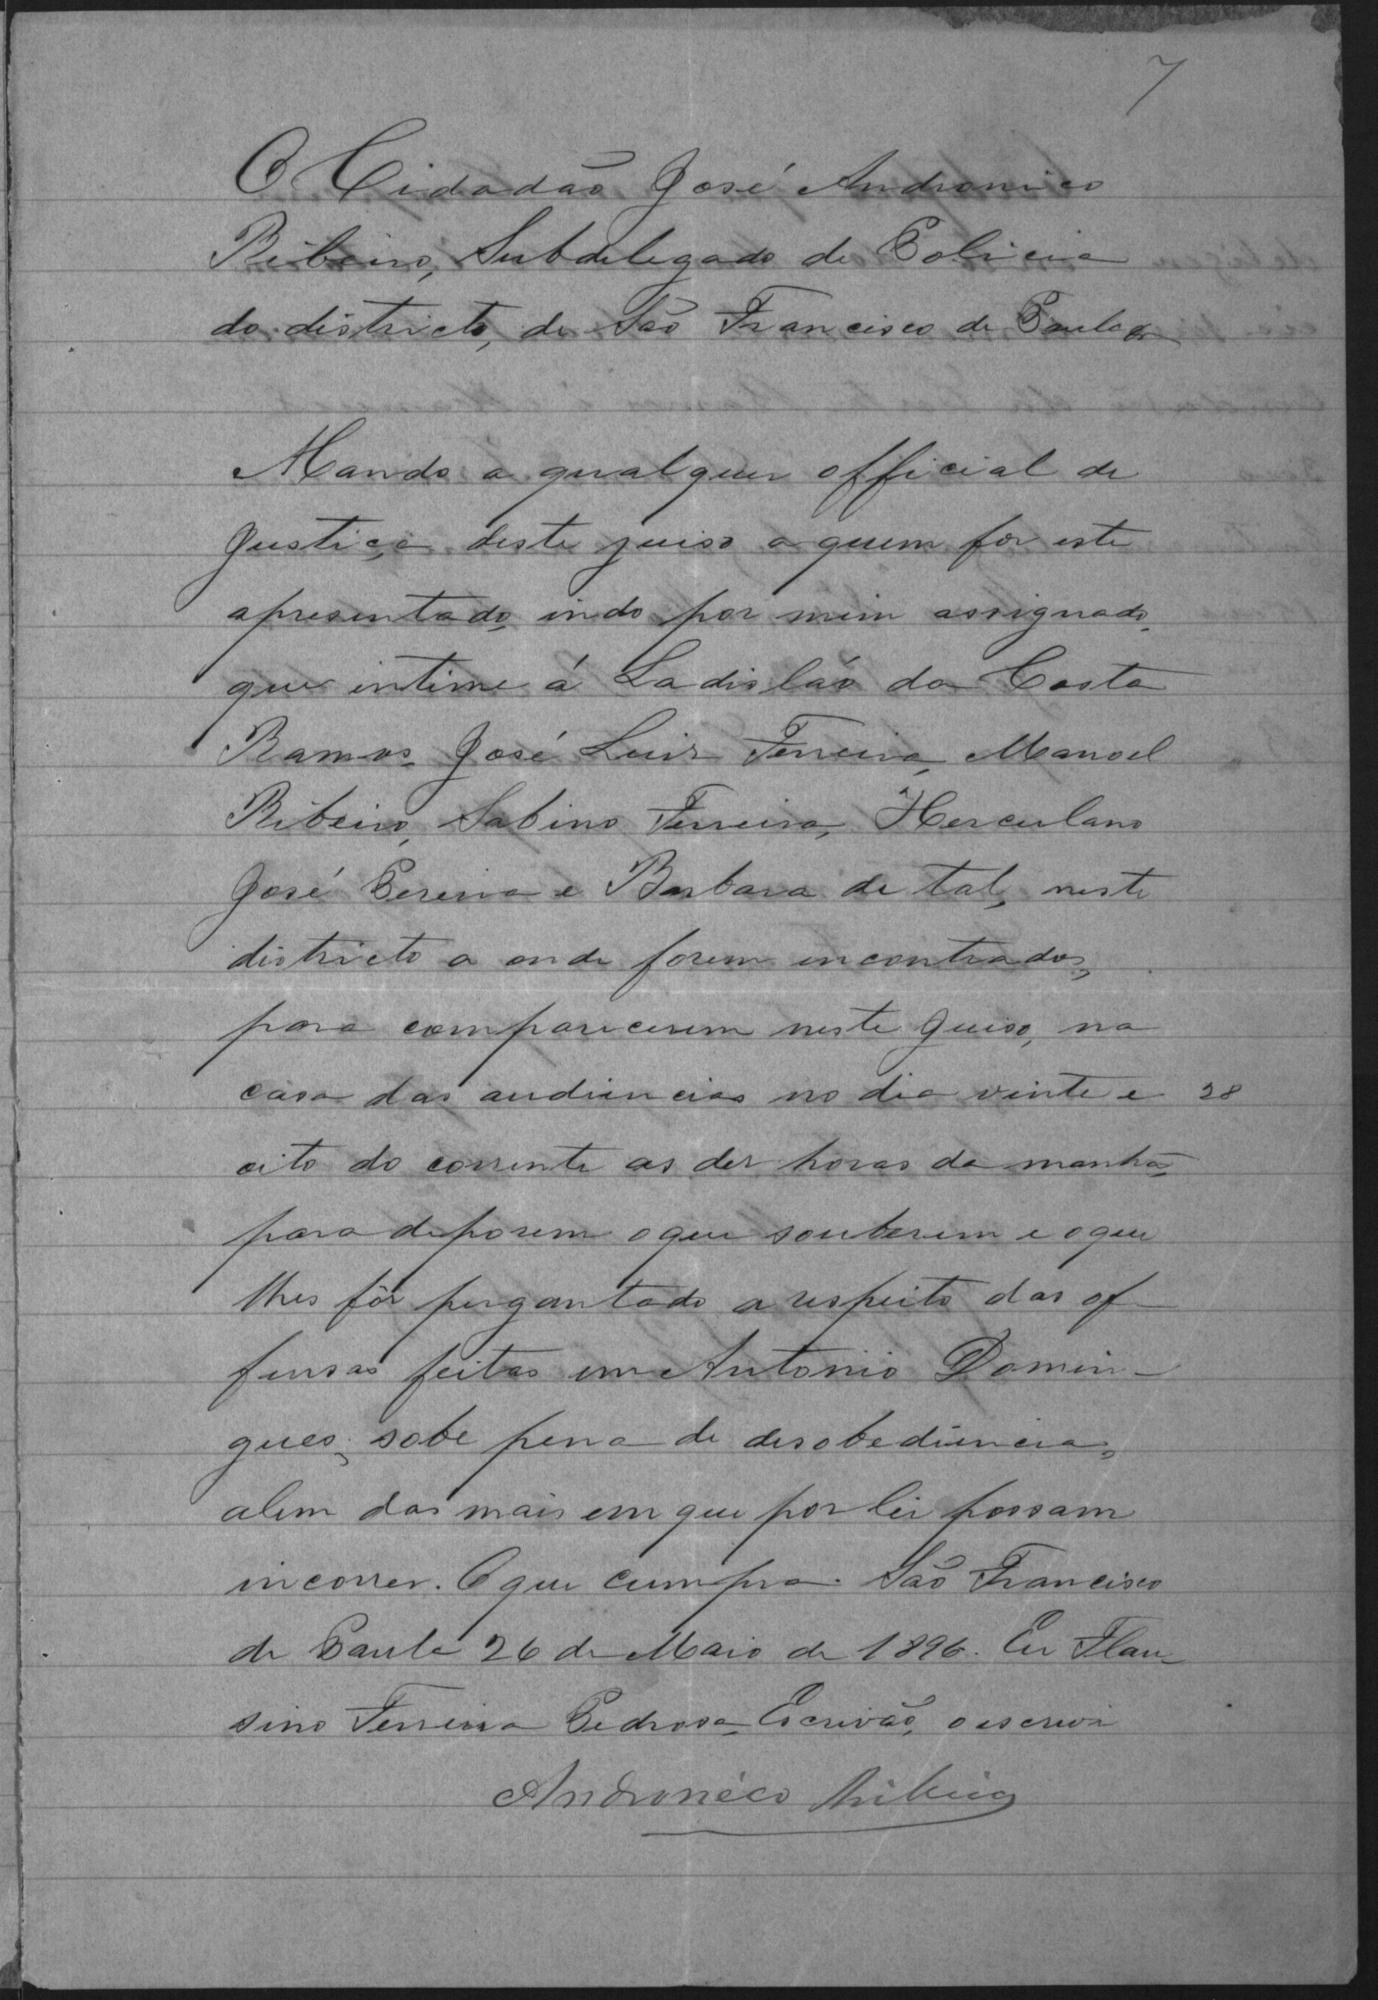 7
O Cidadão José Andronico
Ribeiro, Subdelegado de Policia
do districto, de São Francisco de Paula
Mando a qualquer official de
Justiça deste juiso a quem for este
apresentado, indo por mim assignado,
que intime á Ladisláo da Costa
Ramos, José Luis Ferreira, Manoel
Ribeiro, Sabino Ferreira, Herculano
José Pereira e Barbara de tal, neste
districto a onde forem encontrados,
para comparecerem neste Juiso, na
casa das audiencias no dia vinte e 28
oito do corrente as dez horas da manhã,
para deporem o que souberem e o que
lhes fôr perguntado a respeito das of-
fensas feitas em Antonio Domin-
gues, sobe pena de desobediencia,
alem das mais em que por lei possam
incorrer. O que cumpra. São Francisco
de Paula 26 de Maio de 1896. Eu Flau-
sino Ferreira Pedrosa, Escrivão, o escrevi
Andronico Ribeiro